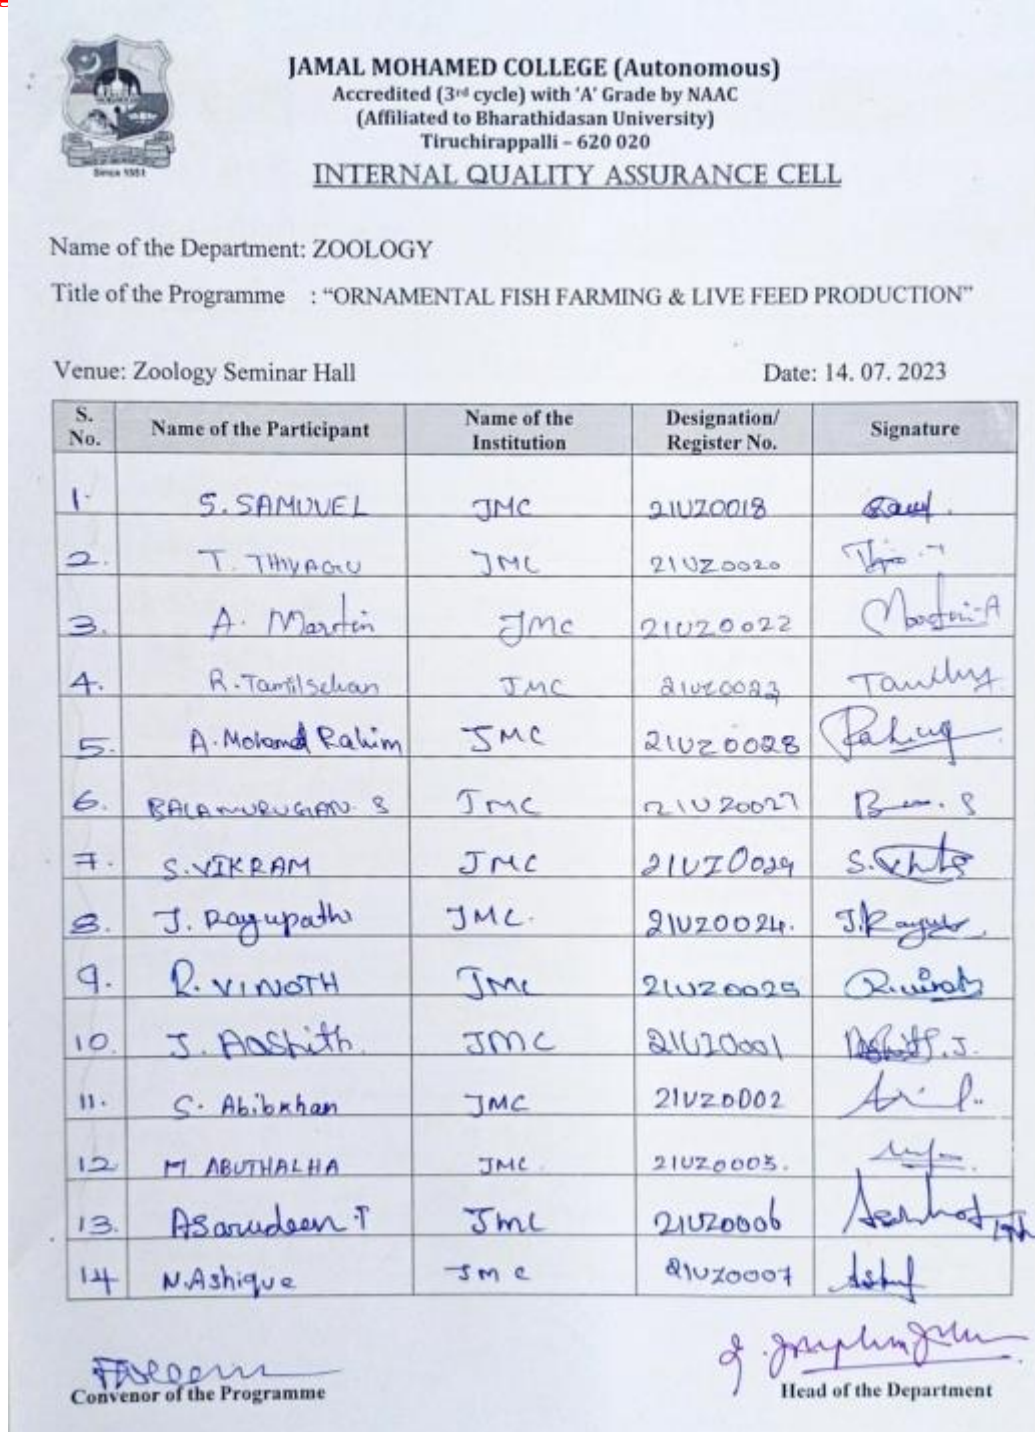 JAMAL MOHAMED COLLEGE (Autonomous)
Accredited (3rd cycle) with 'A' Grade by NAAC
(Affiliated to Bharathidasan University)
Tiruchirappalli – 620 020
Since 1951
INTERNAL QUALITY ASSURANCE CELL
Name of the Department: ZOOLOGY
Title of the Programme : “ORNAMENTAL FISH FARMING & LIVE FEED PRODUCTION”
Venue: Zoology Seminar Hall Date: 14. 07. 2023
S. No. Name of the Participant Name of the Institution Designation/ Register No. Signature
1. S. SAMUVEL JMC 21UZ0018
2. T. THIYAGU JMC 21UZ0020
3. A. Martin JMC 21UZ0022 Martin-A
4. R. Tamilselvan JMC 21UZ0023
5. A. Mohamed Rahim JMC 21UZ0028
6. BALAMURUGAN S JMC 21UZ0027
7. S. VIKRAM JMC 21UZ0029
8. J. Ragupathi JMC. 21UZ0024.
9. R. VINOTH JMC 21UZ0025
10. J. Aashith JMC 21UZ0001
11. S. Abibkhan JMC 21UZ0002
12 M ABUTHALHA JMC 21UZ0003.
13. Asarudeen T JMC 21UZ0006
14 N. Ashique JMC 21UZ0007
Convenor of the Programme Head of the Department